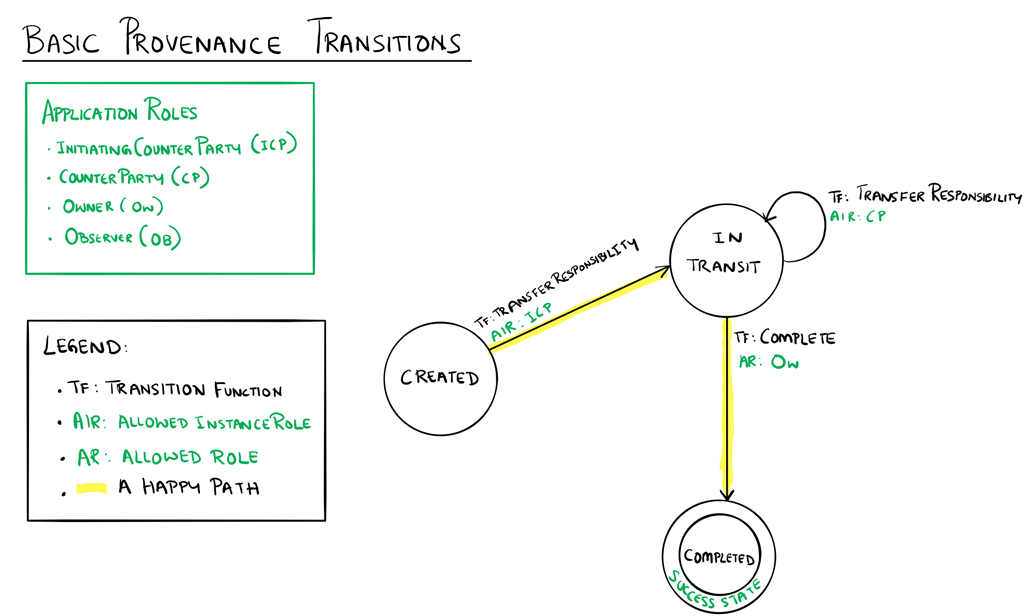 BASIC PROVENANCE TRANSITIONS
APPLICATION ROLES
· INITIATINGCOUNTERPARTY (ICP)
· COUNTERPARTY (CP)
· OWNER (OW)
· OBSERVER (OB)
LEGEND:
· TF: TRANSITION FUNCTION
· AIR: ALLOWED INSTANCEROLE
· AR: ALLOWED ROLE
· A HAPPY PATH
CREATED
TF: TRANSFERRESPONSIBILITY
AIR: ICP
IN
TRANSIT
TF: TRANSFERRESPONSIBILITY
AIR: CP
TF: COMPLETE
AR: OW
COMPLETED
SUCCESS STATE